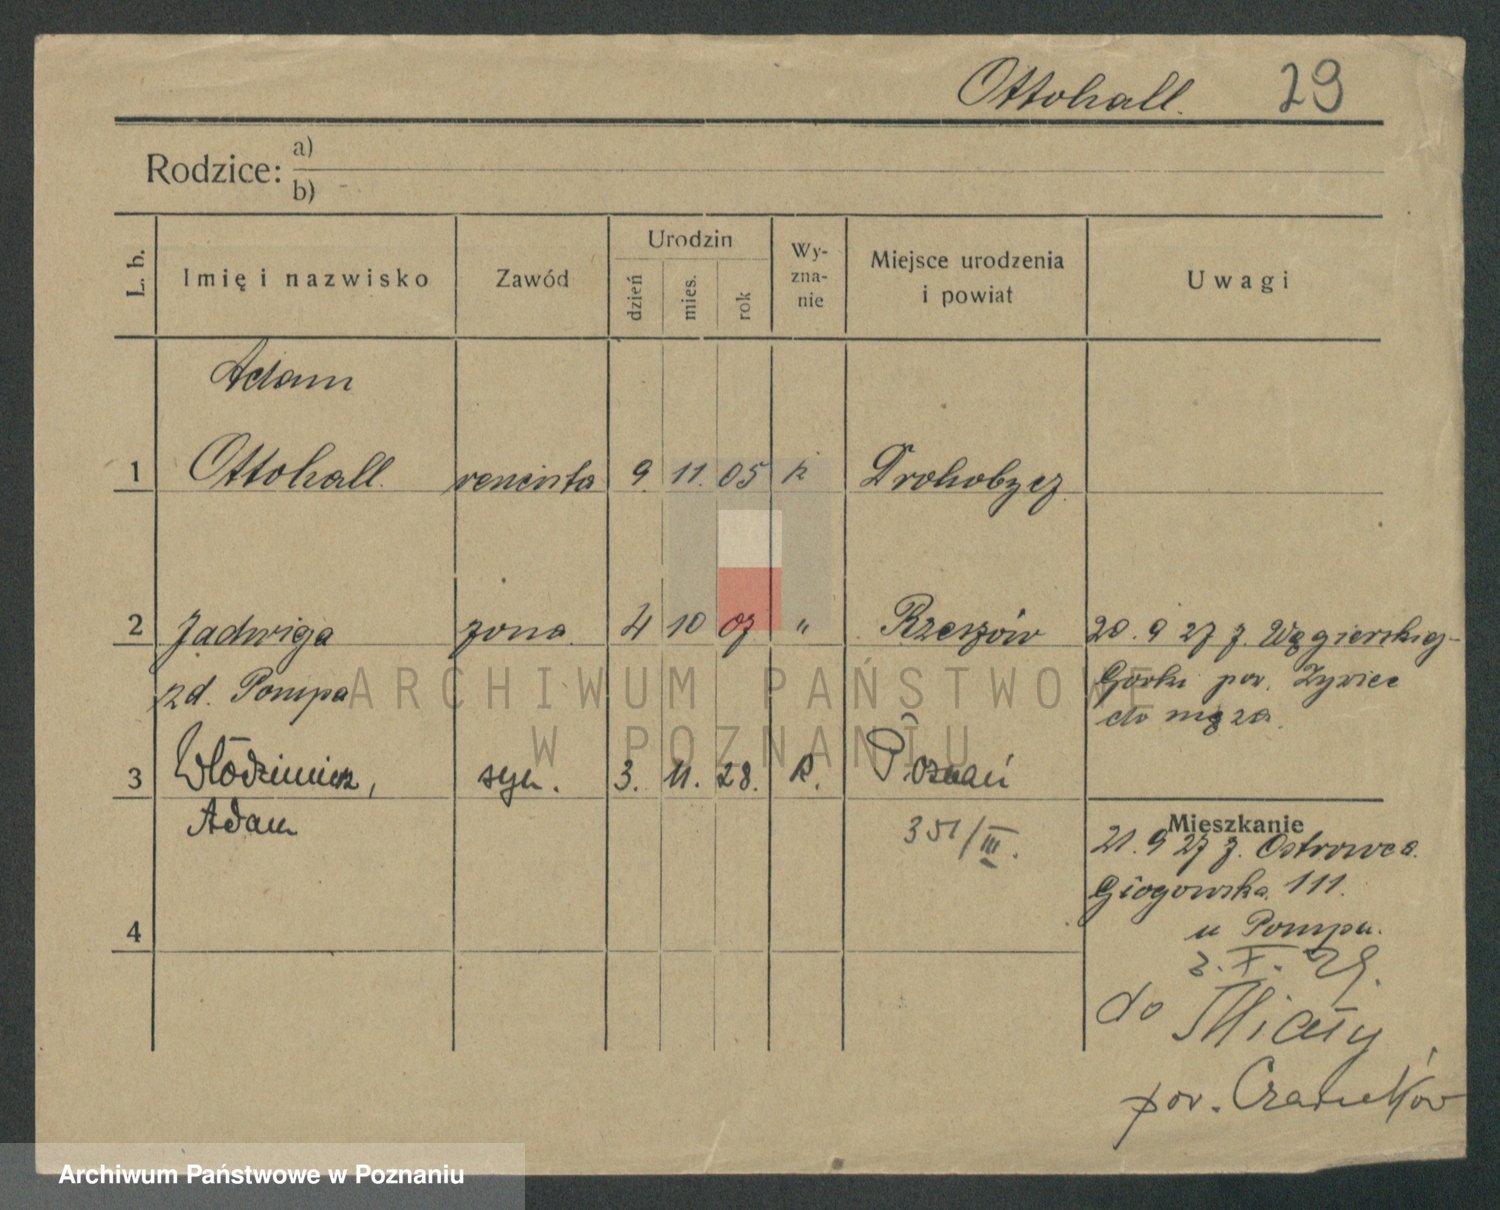 Ottohall. 29
Rodzice: a)
b) -
L. b. Imię i nazwisko Zawód Urodzin dzień mies. rok Wy-zna-nie Miejsce urodzenia i powiat Uwagi
Adam
1 Ottohall. 9. 11. 05 k Drohobycz.
2 Jadwiga żona 4 10 07 " Rzeszów 20. 9 27 z. Węgierskiej-
zd. Pompa Górki pow. Żywiec
do męża.
3 Włodzimierz, syn. 3. 11. 28. R. Poznań
Adam 351/III.
Mieszkanie
21. 9 27 z. Ostrowca.
Głogowska. 111.
u Pompa.
4
3. X. 29.
do Miały
pow. Czarnków
ARCHIWUM PAŃSTWOWE
W POZNANIU
Archiwum Państwowe w Poznaniu